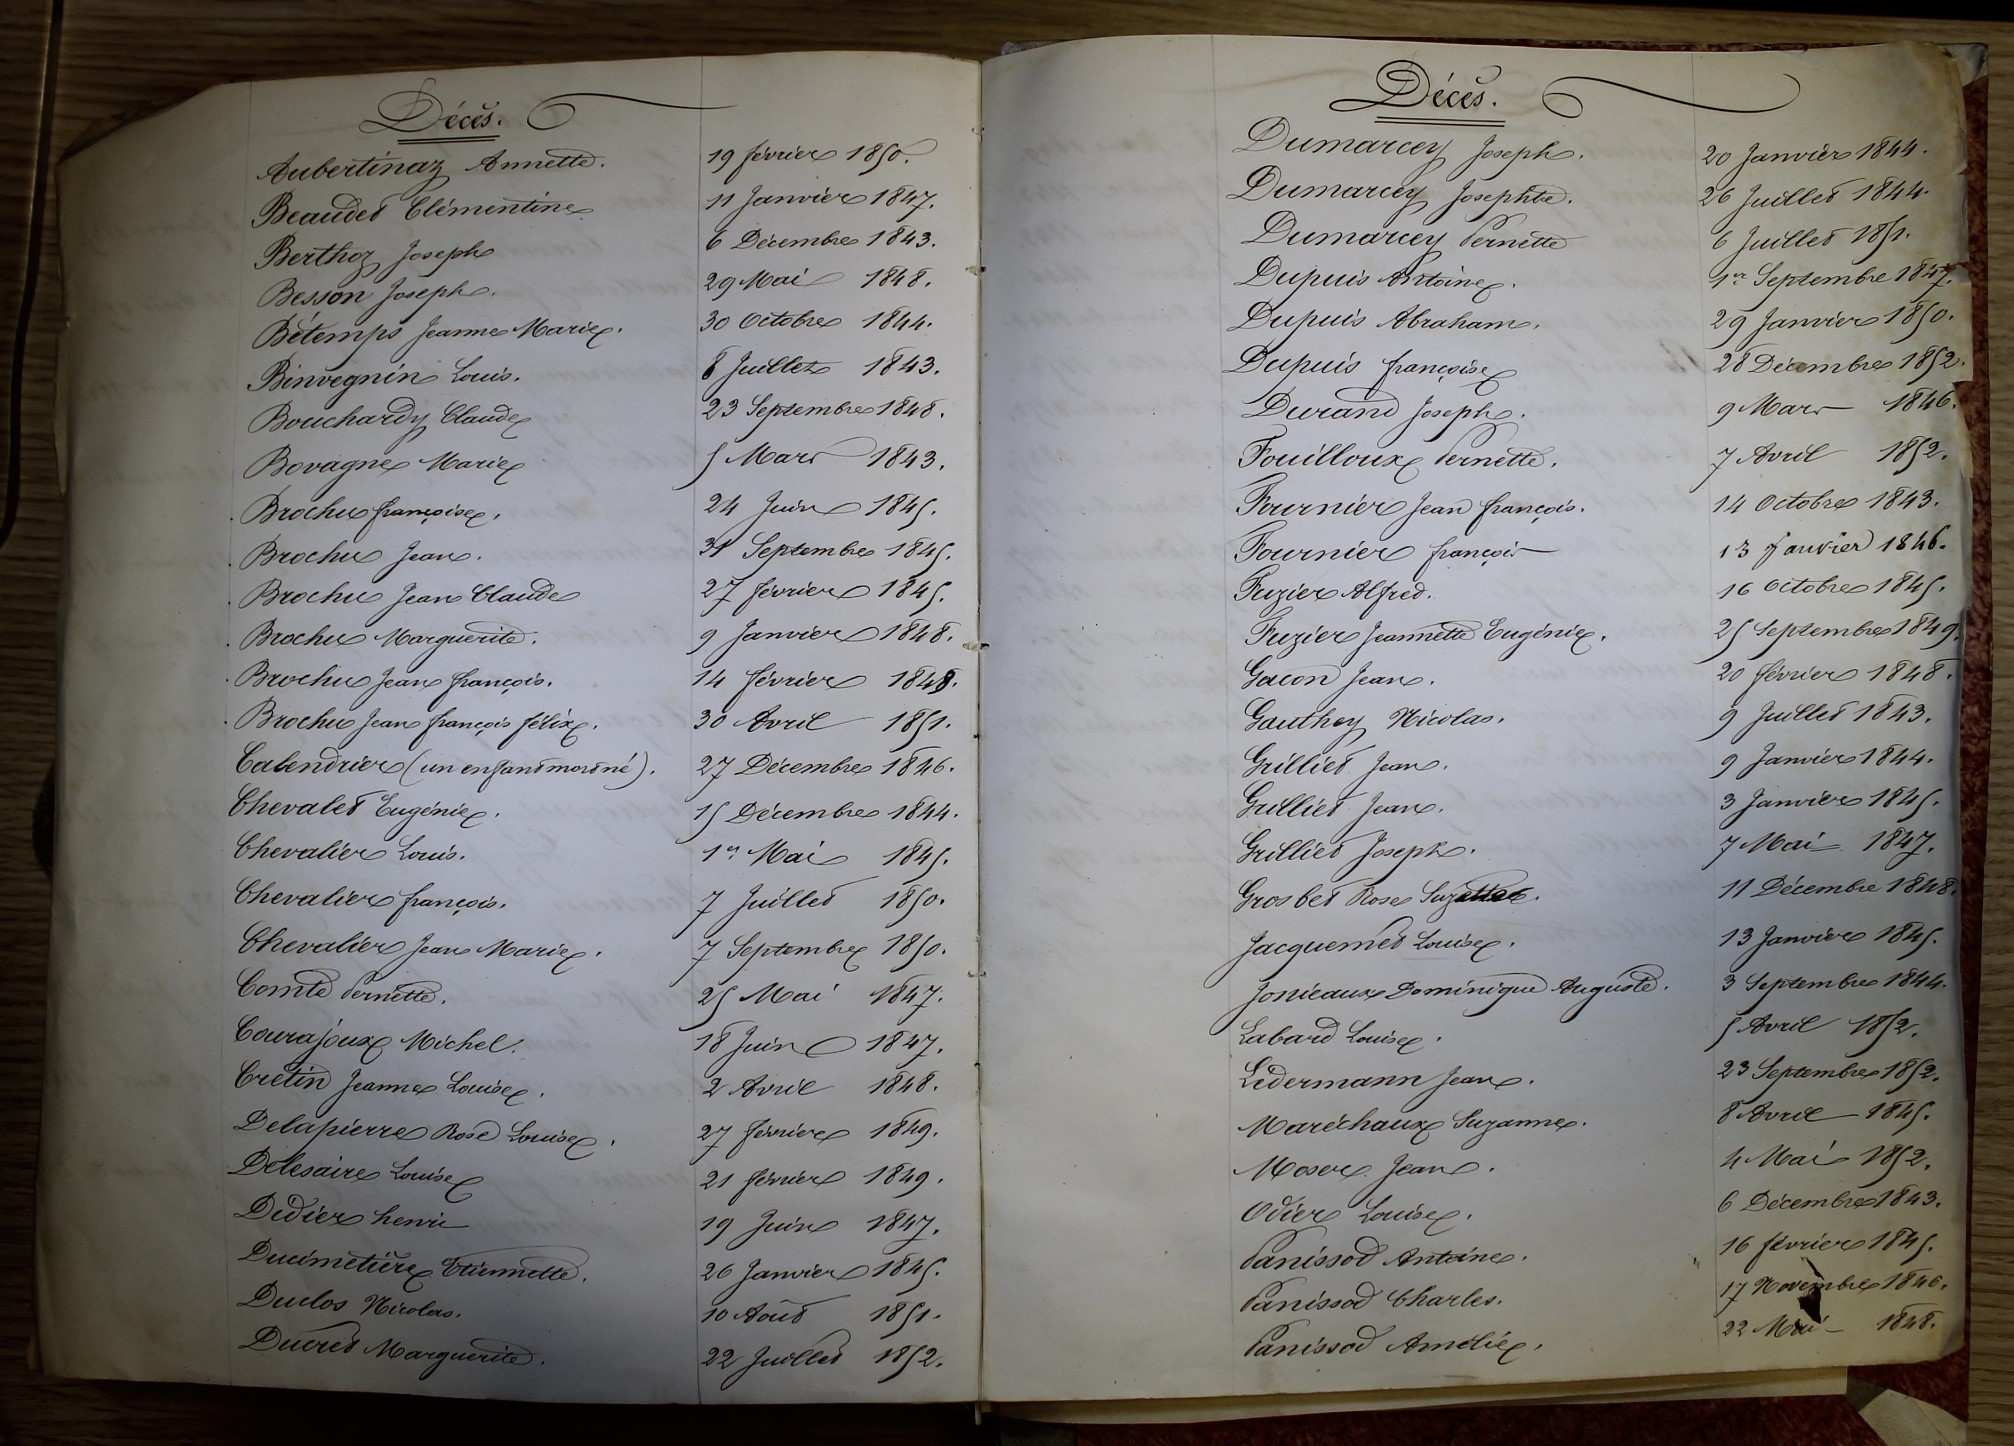 Décès.
Aubertinaz Annette. 19 février 1850.
Beaudet Clémentine 11 Janvier 1847.
Berthoz Joseph 6 Décembre 1843.
Besson Joseph. 29 Mai 1848.
Bétemps Jeanne Marie. 30 Octobre 1844.
Binvegnin Louis. 8 Juillet 1843.
Bouchardy Claude 23 Septembre 1848.
Bovagne Marie 5 Mars 1843.
Brochu françoise. 24 Juin 1845.
Brochu Jean. 31 Septembre 1845.
Brochu Jean Claude 27 février 1845.
Brochu Marguerite. 9 Janvier 1848.
Brochu Jean françois. 14 février 1848.
Brochu Jean françois félix. 30 Avril 1851.
Calendrier (un enfant mort né). 27 Décembre 1846.
Chevalet Eugénie. 15 Décembre 1844.
Chevalier Louis. 1er Mai 1845.
Chevalier françois. 7 Juillet 1850.
Chevalier Jean Marie. 7 Septembre 1850.
Comte Pernette. 25 Mai 1847.
Courajoux Michel. 18 Juin 1847.
Cretin Jeanne Louise. 2 Avril 1848.
Delapierre Rose Louise. 27 février 1849.
Delesaire Louise 21 février 1849.
Didier henri 19 Juin 1847.
Ducimetière Etiennette. 26 Janvier 1845.
Duclos Nicolas. 10 Août 1851.
Ducret Marguerite. 22 Juillet 1852.
Décès.
Dumarcey Joseph. 20 Janvier 1844.
Dumarcey Josephte. 26 Juillet 1844.
Dumarcey Pernette 6 Juillet 1851.
Dupuis Antoine. 1er Septembre 1847.
Dupuis Abraham. 29 Janvier 1850.
Dupuis françoise 28 Décembre 1852.
Durand Joseph. 9 Mars 1846.
Fouilloux Pernette. 7 Avril 1852.
Fournier Jean françois. 14 Octobre 1843.
Fournier françois 13 Janvier 1846.
Fuzier Alfred. 16 Octobre 1845.
Fuzier Jeannette Eugénie. 25 Septembre 1849.
Gacon Jean. 20 février 1848.
Gauthey Nicolas. 9 Juillet 1843.
Grilliet Jean. 9 Janvier 1844.
Grilliet Jean. 3 Janvier 1845.
Grilliet Joseph. 7 Mai 1847.
Grosbet Rose Suzette. 11 Décembre 1848.
Jacquemet Louise. 13 Janvier 1845.
Jonieaux Dominique Auguste. 3 Septembre 1844.
Labard Louise. 5 Avril 1852.
Ledermann Jean. 23 Septembre 1852.
Maréchaux Suzanne. 8 Avril 1845.
Moser Jean. 4 Mai 1852.
Odier Louise. 6 Décembre 1843.
Panissod Antoine. 16 février 1845.
Panissod Charles. 17 Novembre 1846.
Panissod Amélie. 22 Mai 1848.